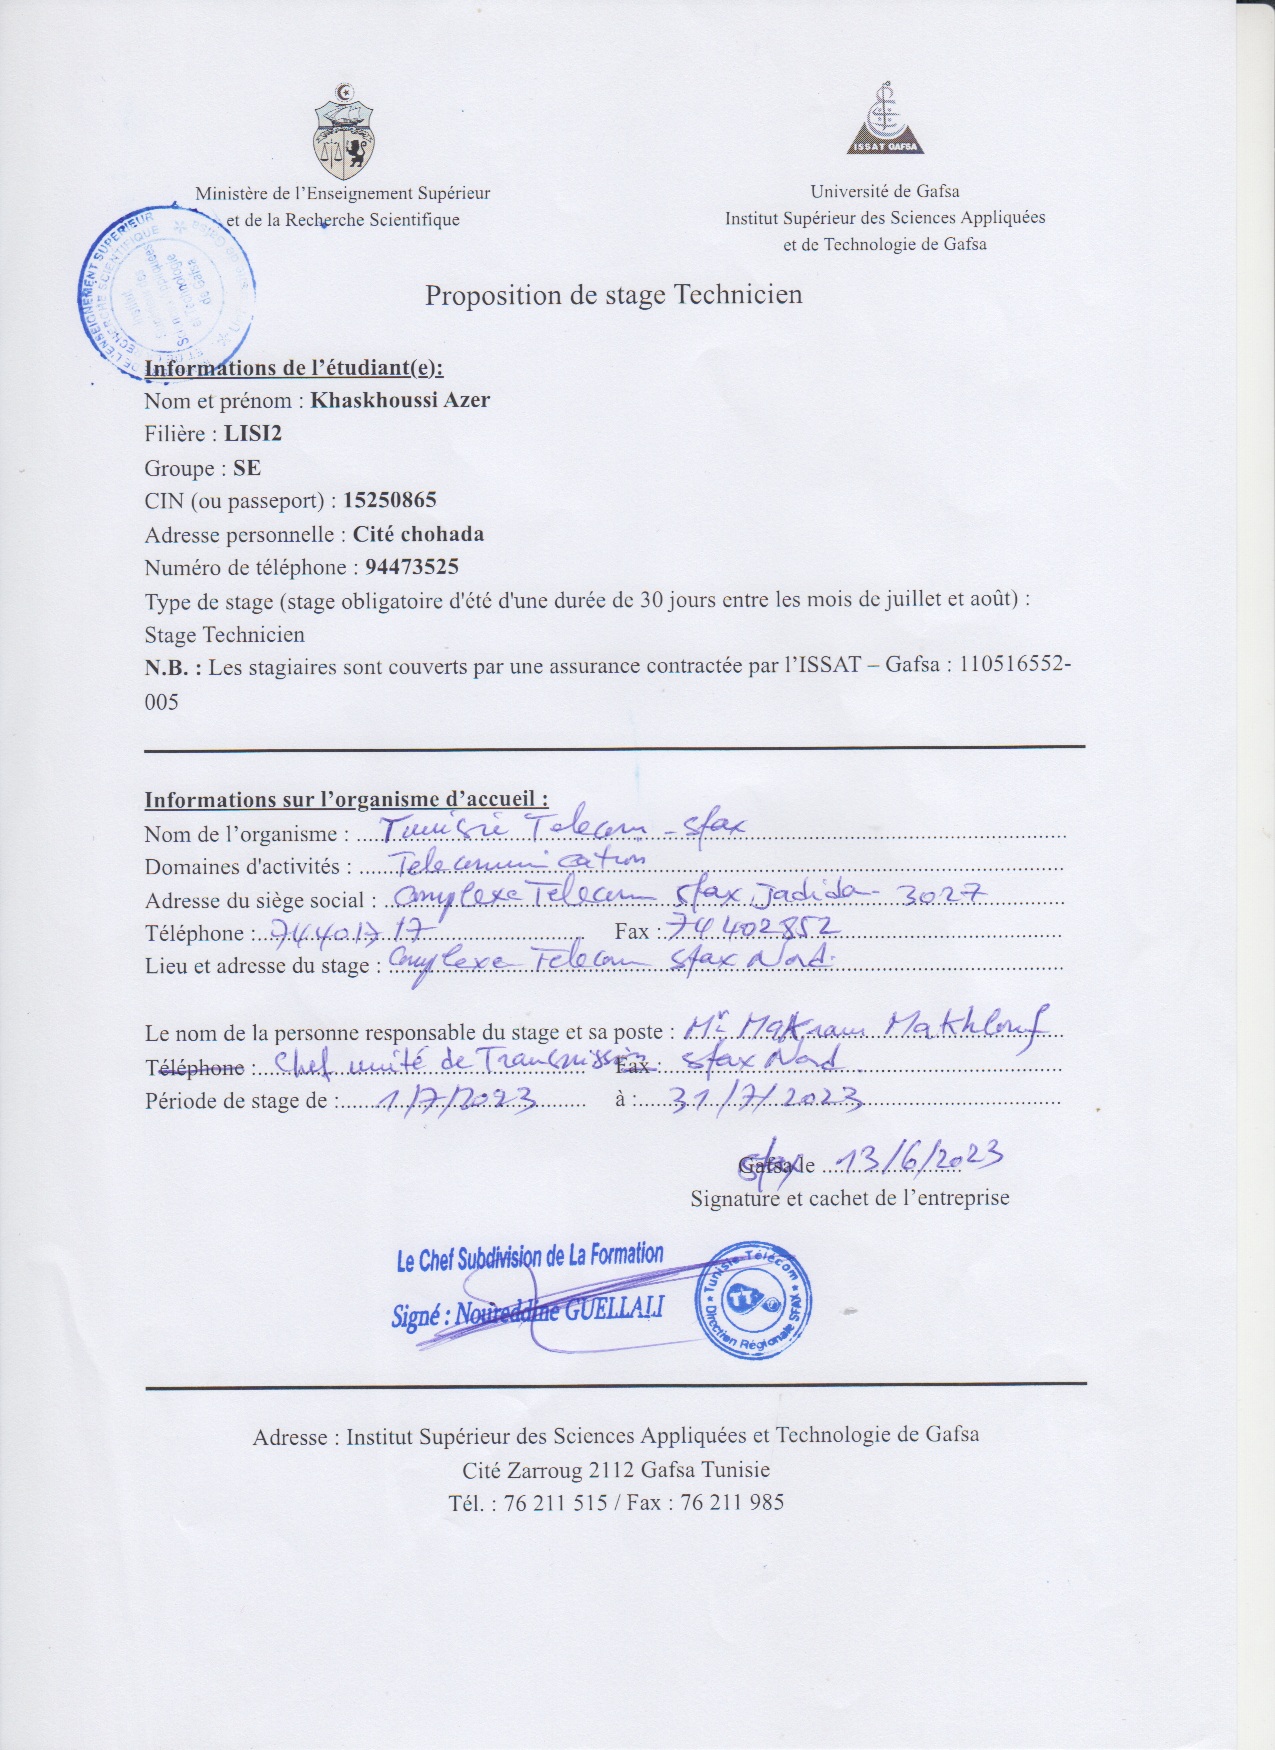 ISSAT GAFSA
Ministère de l'Enseignement Supérieur
et de la Recherche Scientifique
Université de Gafsa
Institut Supérieur des Sciences Appliquées
et de Technologie de Gafsa
DE L'ENSEIGNEMENT SUPERIEUR
SCIENTIFIQUE
Proposition de stage Technicien
Informations de l'étudiant(e):
Nom et prénom : Khaskhoussi Azer
Filière : LISI2
Groupe : SE
CIN (ou passeport) : 15250865
Adresse personnelle : Cité chohada
Numéro de téléphone : 94473525
Type de stage (stage obligatoire d'été d'une durée de 30 jours entre les mois de juillet et août) :
Stage Technicien
N.B. : Les stagiaires sont couverts par une assurance contractée par l'ISSAT – Gafsa : 110516552-
005
Informations sur l'organisme d'accueil :
Nom de l'organisme : Tunisie Telecom - Sfax
Domaines d'activités : Telecommunication
Adresse du siège social : Complexe Telecom Sfax Jadida - 3027
Téléphone : 74401717 Fax : 74 402852
Lieu et adresse du stage : Complexe Telecom Sfax Nord.
Le nom de la personne responsable du stage et sa poste : Mr Makram Makhlouf
Téléphone : Chef unité de Transmission Fax : Sfax Nord
Période de stage de : 1/7/2023 à : 31/7/2023
Gafsa Sfax le 13/6/2023
Signature et cachet de l'entreprise
Le Chef Subdivision de La Formation
Signé : Noureddine GUELLALI
Tunisie Télécom
TT
Direction Régionale SFAX
Adresse : Institut Supérieur des Sciences Appliquées et Technologie de Gafsa
Cité Zarroug 2112 Gafsa Tunisie
Tél. : 76 211 515 / Fax : 76 211 985